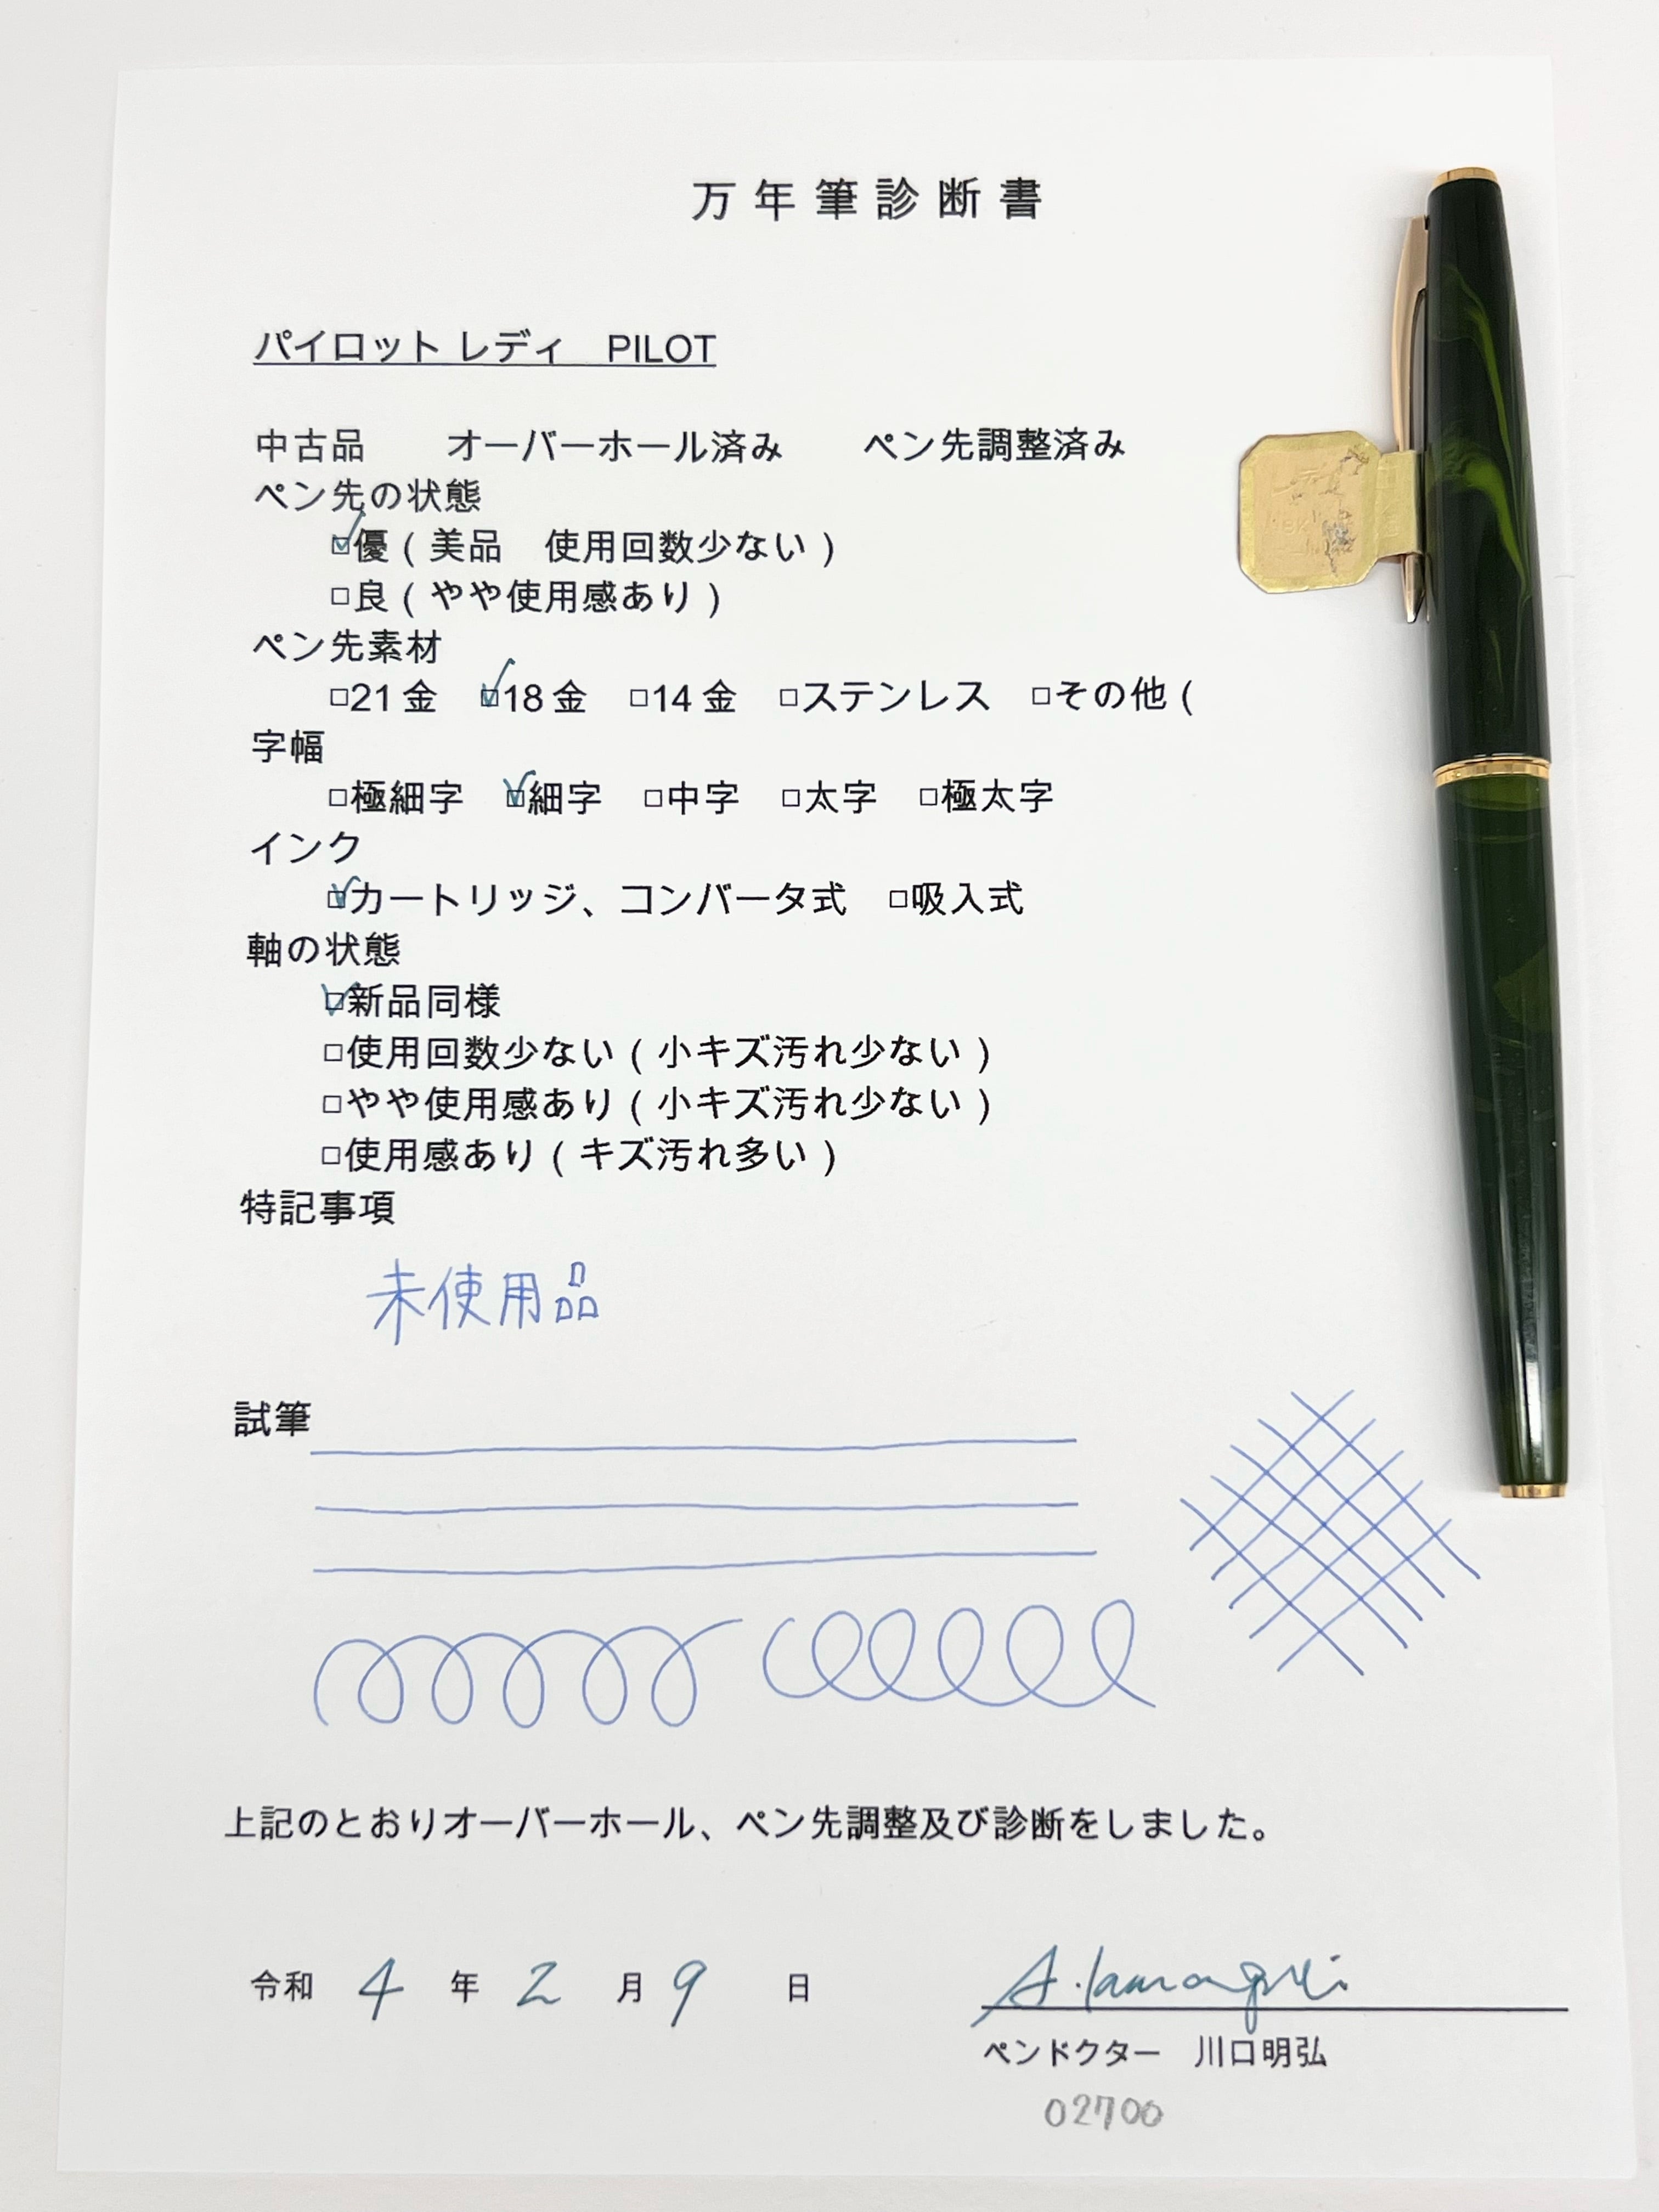 万年筆診断書
パイロット レディ　PILOT
中古品　　オーバーホール済み　　ペン先調整済み
ペン先の状態
☑優（美品　使用回数少ない）
□良（やや使用感あり）
ペン先素材
□21金　☑18金　□14金　□ステンレス　□その他（
字幅
□極細字　☑細字　□中字　□太字　□極太字
インク
☑カートリッジ、コンバータ式　□吸入式
軸の状態
☑新品同様
□使用回数少ない（小キズ汚れ少ない）
□やや使用感あり（小キズ汚れ少ない）
□使用感あり（キズ汚れ多い）
特記事項
未使用品
試筆
上記のとおりオーバーホール、ペン先調整及び診断をしました。
令和 4 年 2 月 9 日
ペンドクター　川口明弘
02700